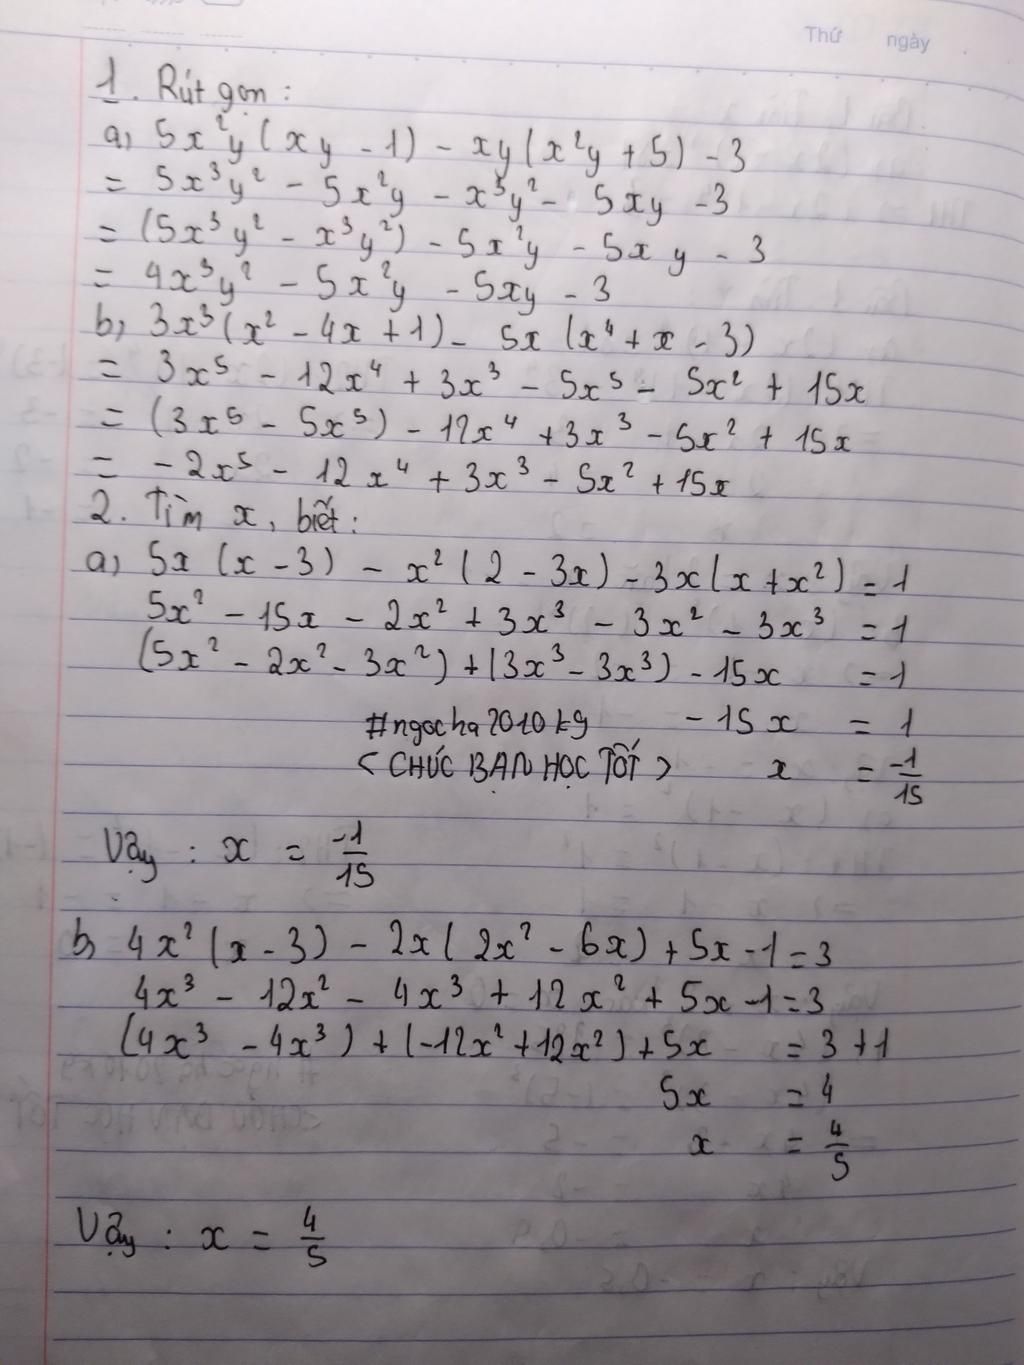 Thứ ngày
1. Rút gọn :
a, 5x²y (xy - 1) - xy (x²y + 5) - 3
= 5x³y² - 5x²y - x³y² - 5xy - 3
= (5x³y² - x³y²) - 5x²y - 5xy - 3
= 4x³y² - 5x²y - 5xy - 3
b, 3x³ (x² - 4x + 1) - 5x (x⁴ + x - 3)
= 3x⁵ - 12x⁴ + 3x³ - 5x⁵ - 5x² + 15x
= (3x⁵ - 5x⁵) - 12x⁴ + 3x³ - 5x² + 15x
= -2x⁵ - 12x⁴ + 3x³ - 5x² + 15x
2. Tìm x, biết :
a, 5x (x - 3) - x² (2 - 3x) - 3x (x + x²) = 1
5x² - 15x - 2x² + 3x³ - 3x² - 3x³ = 1
(5x² - 2x² - 3x²) + (3x³ - 3x³) - 15x = 1
#ngocha2010kg - 15x = 1
<CHÚC BẠN HỌC TỐT> x = -1/15
Vậy : x = -1/15
b, 4x² (x - 3) - 2x (2x² - 6x) + 5x - 1 = 3
4x³ - 12x² - 4x³ + 12x² + 5x - 1 = 3
(4x³ - 4x³) + (-12x² + 12x²) + 5x = 3 + 1
5x = 4
x = 4/5
Vậy : x = 4/5